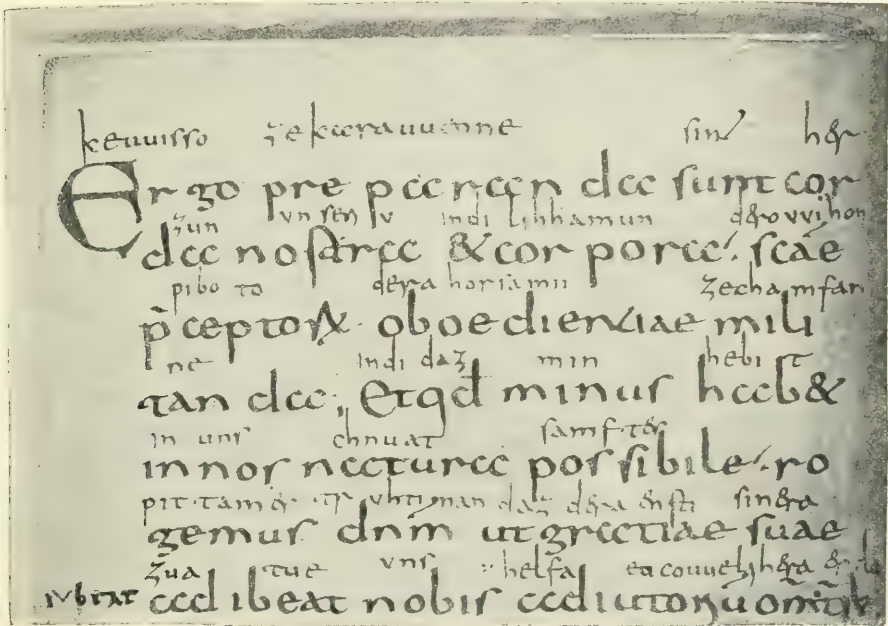 keuuisso zekicerauuenne sint her
Ergo preparanda sunt cor
zun vnseriu indi lihhamun dero vvihon
da nostra & corpora. scae
piboto dera horsamii zechamfan
p̄ceptorꝝ oboedientiae mili
ne indi daz min hebit
tanda; Et qd minus hab&
in uns chnuat samfter
in nos natura possibile. ro
daz dera ensti sinera
gemus dnm ut gratiae suae
zua tue vns helfa
iubeat adlibeat nobis adiutoriū